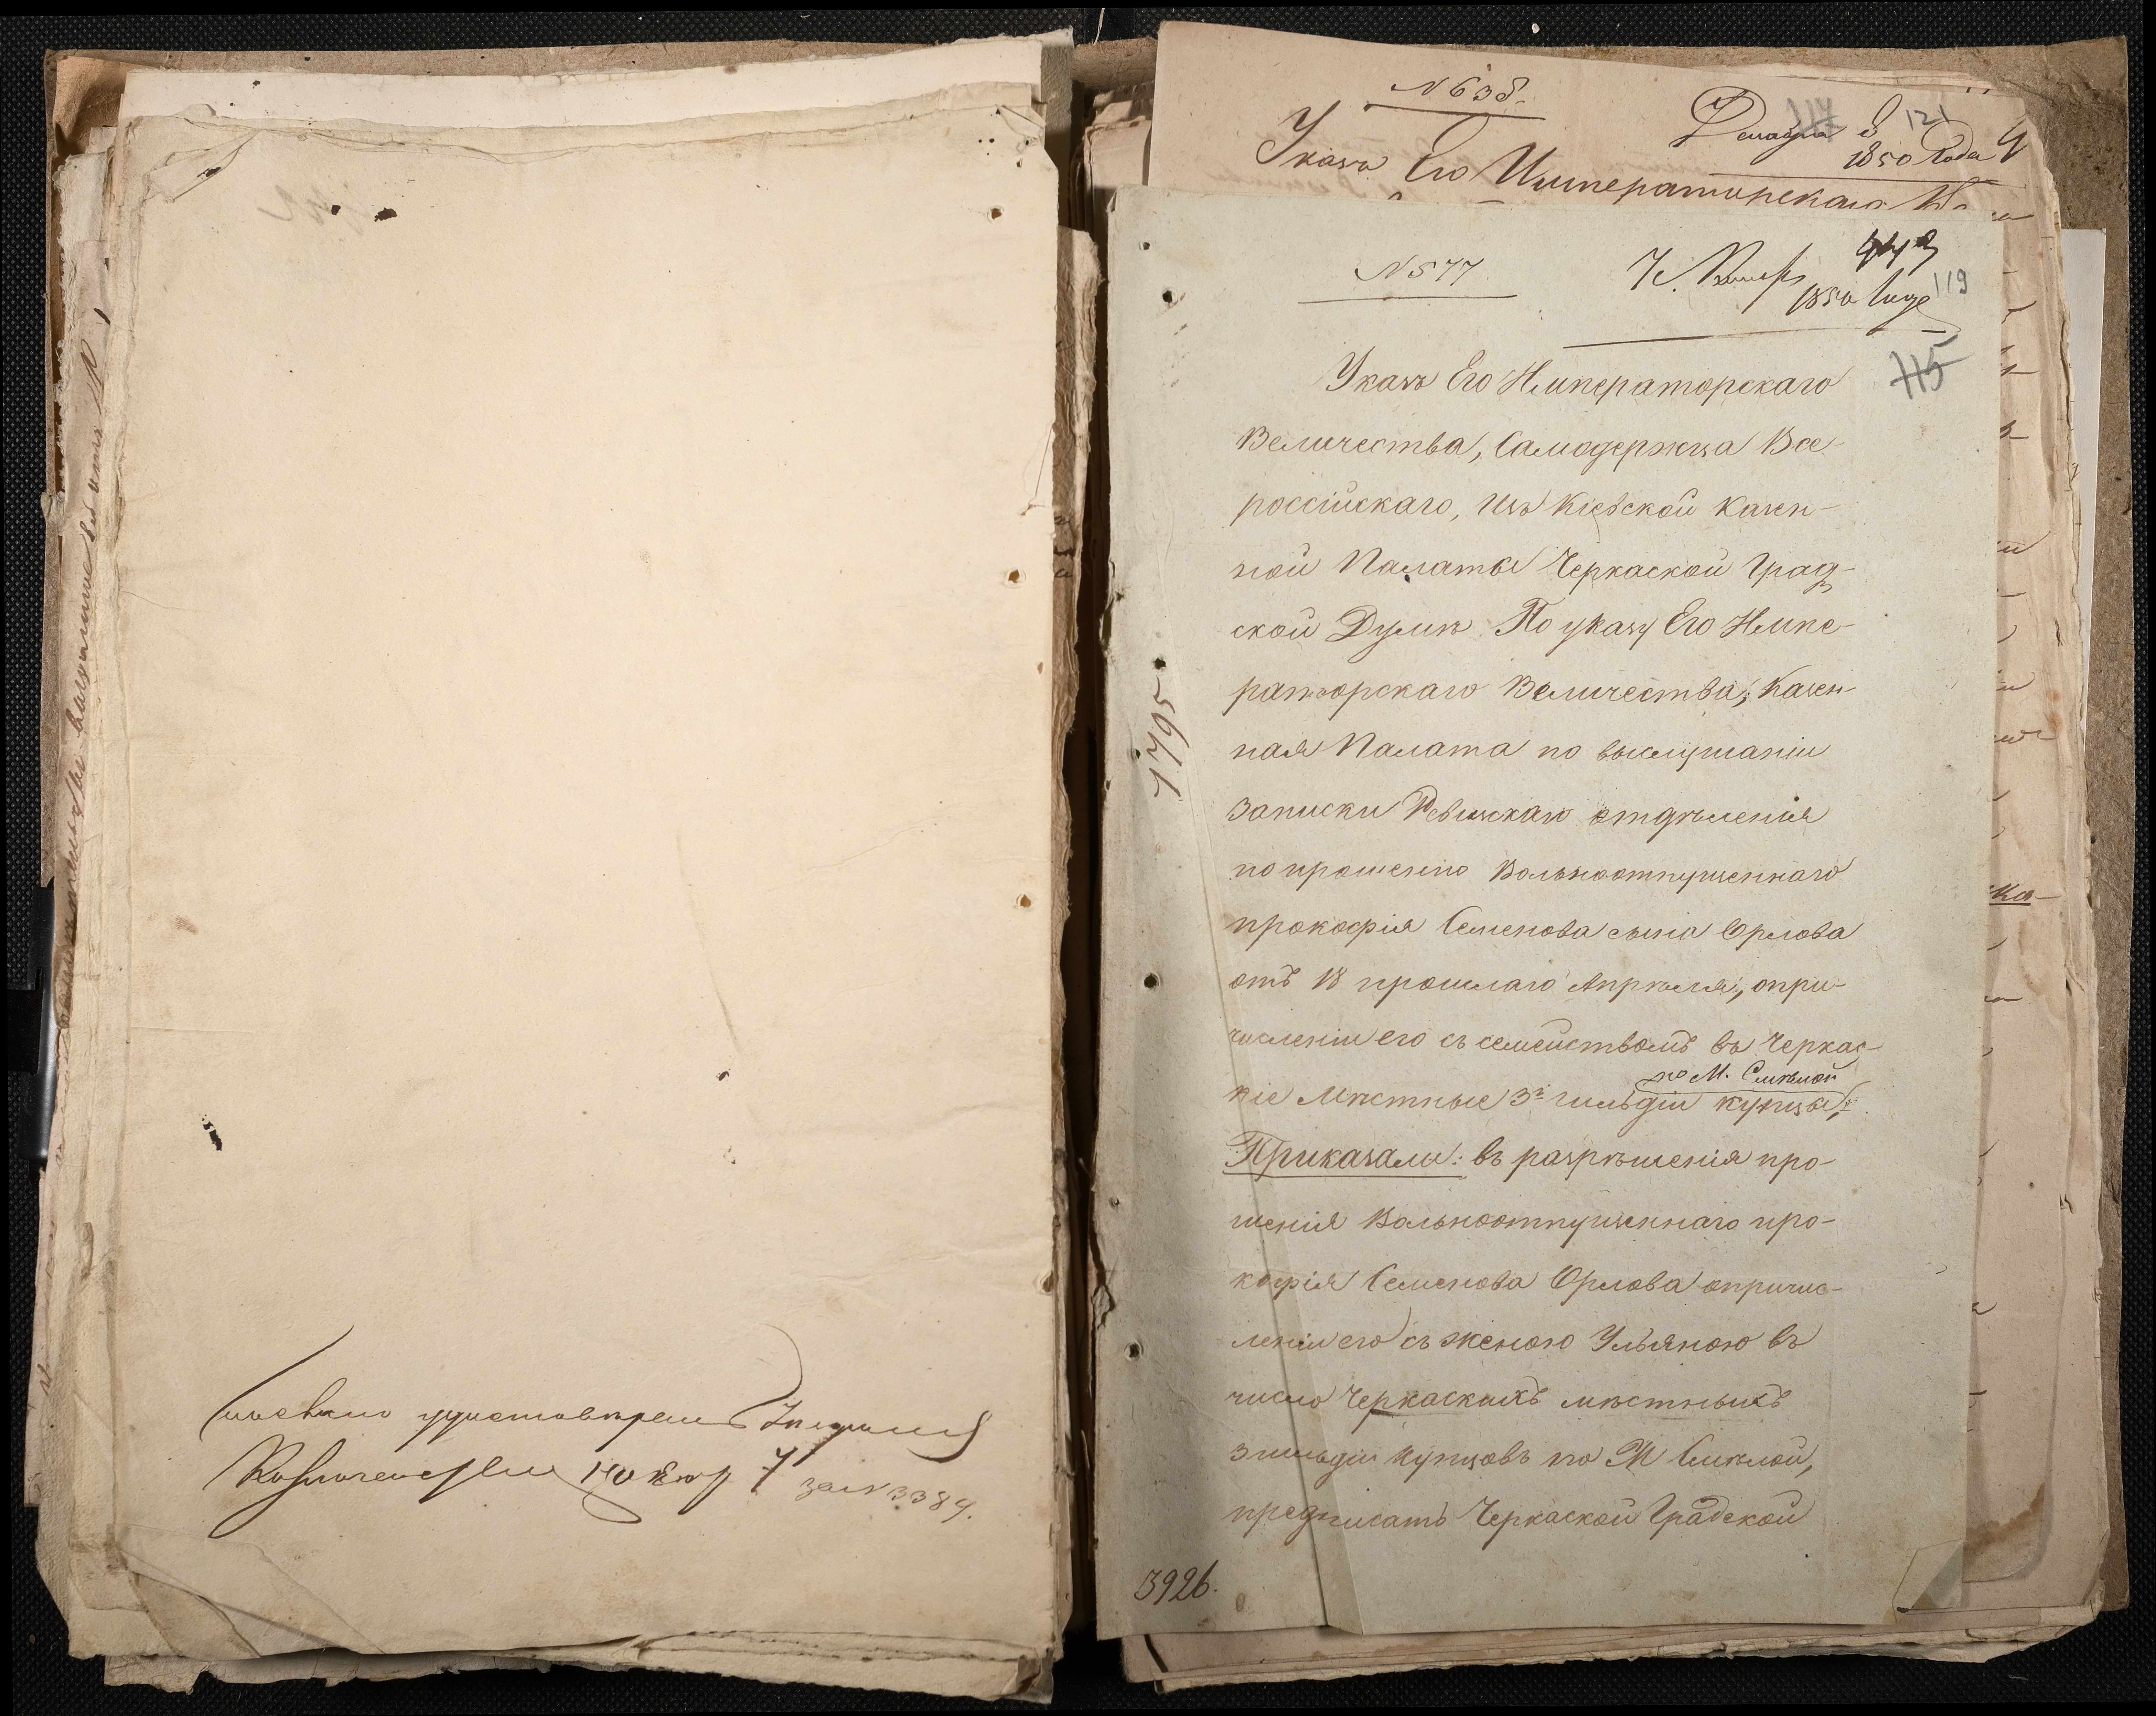 зал N 3384.
N 638.
Декабря 8 121
1850 года
Указъ Его Императорскаго
N 577
443
1850 года 119
115
Указъ Его Императорскаго
Величества, Самодержца Все-
россійскаго, изъ Кіевской Казен-
ной Палаты Черкаской Град-
ской Думѣ. По указу Его Импе-
раторскаго Величества, Казен-
ная Палата по выслушаніи
записки Ревизскаго отдѣленія
по прошенію Вольноотпущеннаго
Прокофія Семенова сына Орлова
отъ 18 прошлаго Апрѣля, опри-
численіи его съ семействомъ въ Черкас-
по М. Смѣлой
кіе Мѣстные 3й гильдіи купцы,
Приказали: въ разрѣшенія про-
шенія Вольноотпущеннаго Про-
кофія Семенова Орлова опричис-
леніи его съ женою Ульяною въ
число Черкаскихъ мѣстныхъ
3 гильдіи купцовъ по М Смѣлой,
предписать Черкаской Градской
1795
3926.